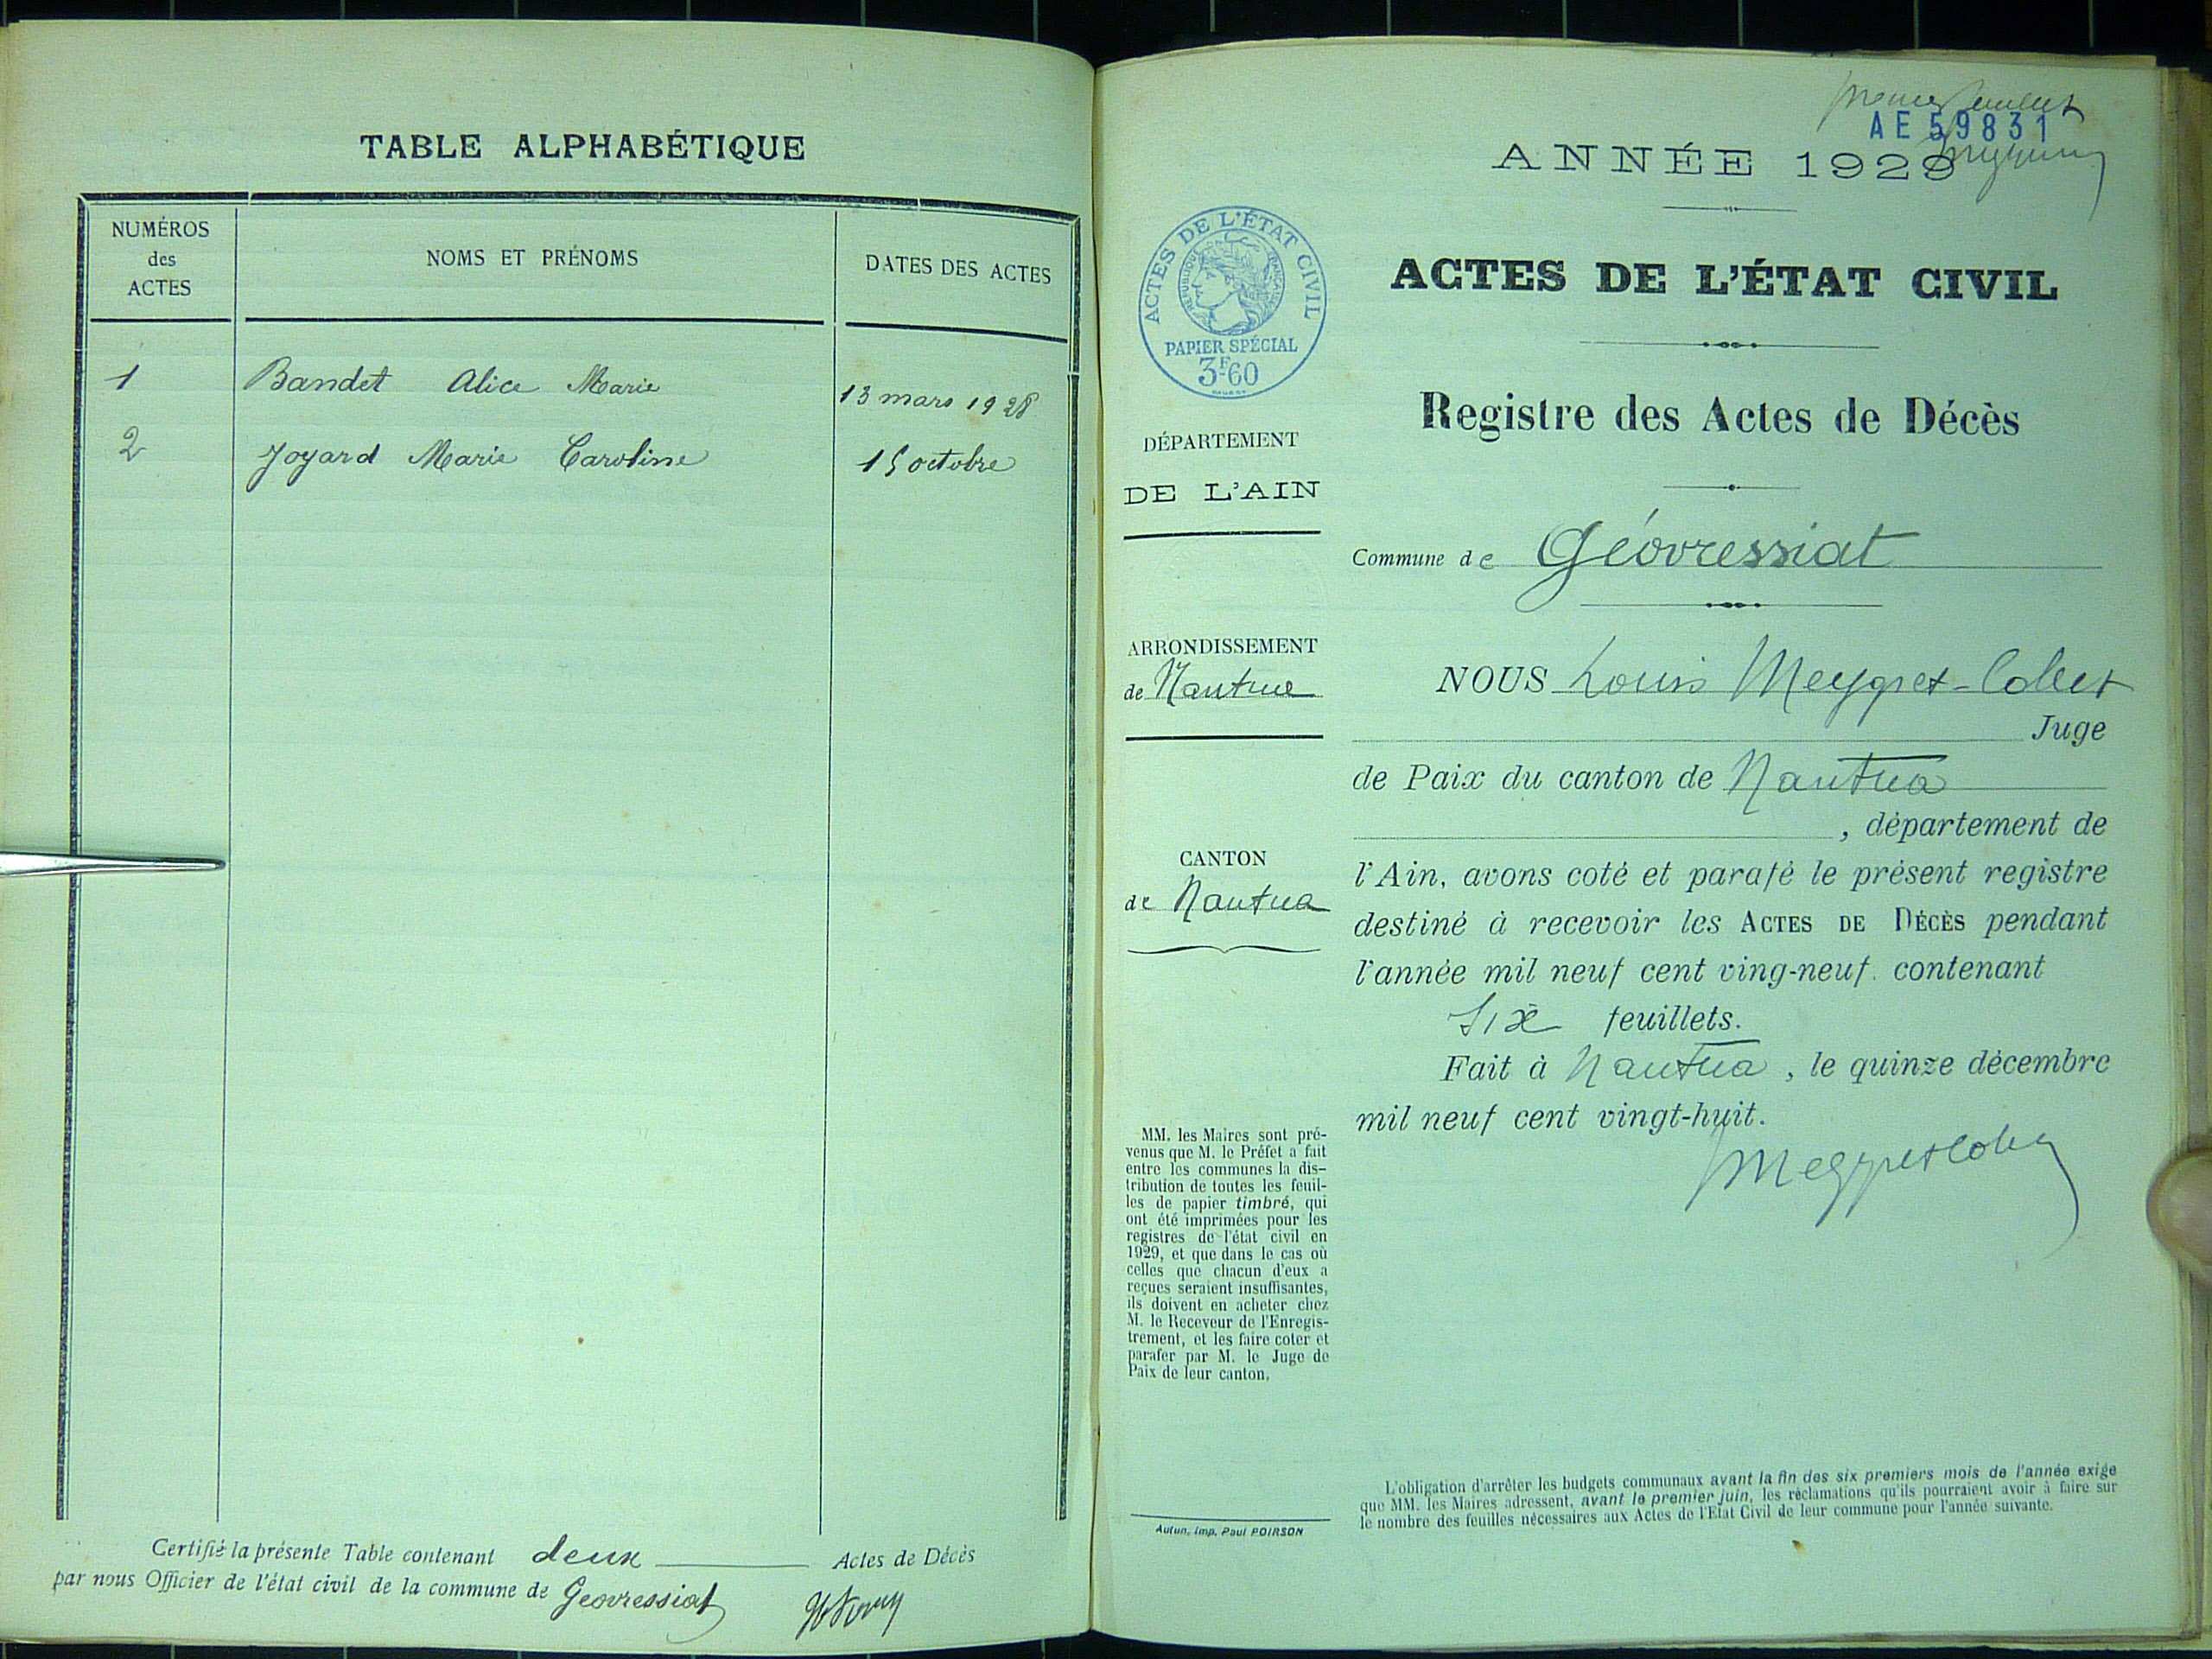 TABLE ALPHABÉTIQUE
NUMÉROS
des
ACTES
NOMS ET PRÉNOMS
DATES DES ACTES
1 Bandet Alice Marie 13 mars 1928
2 Joyard Marie Caroline 15 octobre
Certifié la présente Table contenant deux Actes de Décès
par nous Officier de l'état civil de la commune de Geovressiat
AE 59831
ANNÉE 1929
ACTES DE L'ÉTAT CIVIL
RÉPUBLIQUE FRANÇAISE
PAPIER SPÉCIAL
3F60
ACTES DE L'ÉTAT CIVIL
Registre des Actes de Décès
DÉPARTEMENT
DE L'AIN
Commune de Géovressiat
ARRONDISSEMENT
de Nantua
NOUS Louis Meygret-Collet
Juge
de Paix du canton de Nantua
, département de
CANTON
de Nantua
l'Ain, avons coté et parafé le présent registre
destiné à recevoir les ACTES DE DÉCÈS pendant
l'année mil neuf cent ving-neuf. contenant
Six feuillets.
Fait à Nantua, le quinze décembre
mil neuf cent vingt-huit.
MM. les Maires sont pré-
venus que M. le Préfet a fait
entre les communes la dis-
tribution de toutes les feuil-
les de papier timbré, qui
ont été imprimées pour les
registres de l'état civil en
1929, et que dans le cas où
celles que chacun d'eux a
reçues seraient insuffisantes,
ils doivent en acheter chez
M. le Receveur de l'Enregis-
trement, et les faire coter et
parafer par M. le Juge de
Paix de leur canton,
Autun, Imp. Paul POIRSON
L'obligation d'arrêter les budgets communaux avant la fin des six premiers mois de l'année exige
que MM. les Maires adressent, avant le premier juin, les réclamations qu'ils pourraient avoir à faire sur
le nombre des feuilles nécessaires aux Actes de l'Etat Civil de leur commune pour l'année suivante.